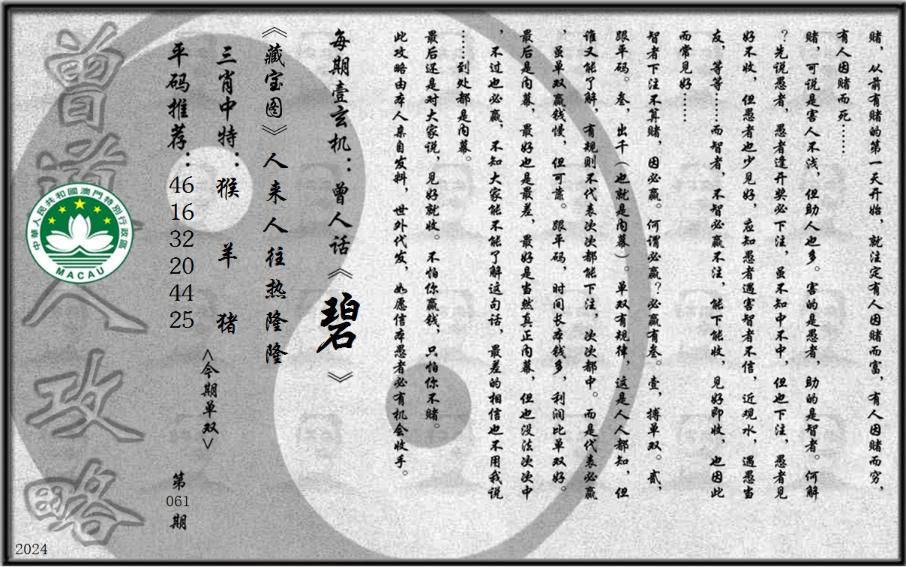 赌，从前有赌的第一天开始，就注定有人因赌而富，有人因赌而穷，
有人因赌而死……
赌，可说是害人不浅，但助人也多。害的是愚者，助的是智者。何解
？先说愚者，愚者逢开奖必下注，虽不知中不中，但也下注，愚者见
好不收，但愚者也少见好，应知愚者遇害智者不信，近观水，遇愚当
友，等等……而智者，不智必赢不注，能下能收，见好即收，也因此
而常见好……
智者下注不算赌，因必赢。何谓必赢？必赢有叁。壹，搏单双。贰，
跟平码。叁，出千（也就是内幕）。单双有规律，这是人人都知，但
谁又能了解，有规则不代表次次都能下注，次次都中。而是代表必赢
，虽单双赢钱慢，但可靠。跟平码，时间长本钱多，利润比单双好。
最后是内幕，最好也是最差，最好是当然真正内幕，但也没法次次中
，不过也必赢，不知大家能不能了解这句话，最差的相信也不用我说
……到处都是内幕。
最后还是对大家说，见好就收。不怕你赢钱，只怕你不赌。
此攻略由本人亲自发料，世外代发，如愿信本愚者必有机会收手。
每期壹玄机：曾人话《碧》
《藏宝图》人来人往热隆隆
三肖中特：猴羊猪
<今期单双>
平码推荐：46 16 32 20 44 25
第061期
曾道人攻略
中華人民共和國澳門特別行政區
MACAU
2024